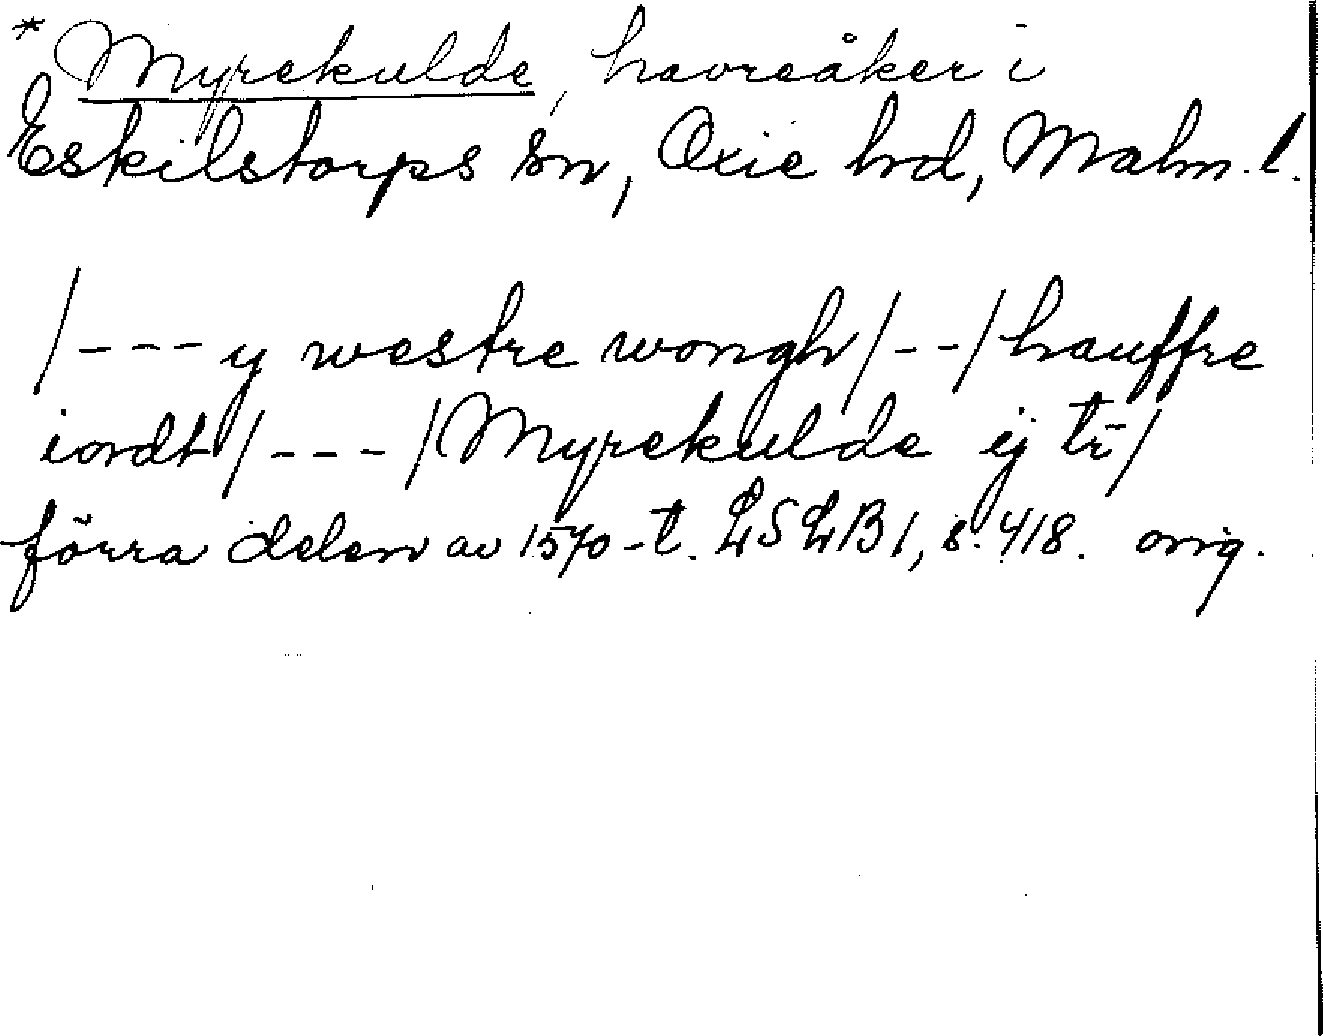 * Myrekulde, havreåker i
Eskilstorps sn, Oxie hd, Malm. l.
/--- y westre wongh/--/hauffre
iordt/---/Myrekulde ij tī/
förra delen av 1570-t. LSLB 1, s. 418. orig.